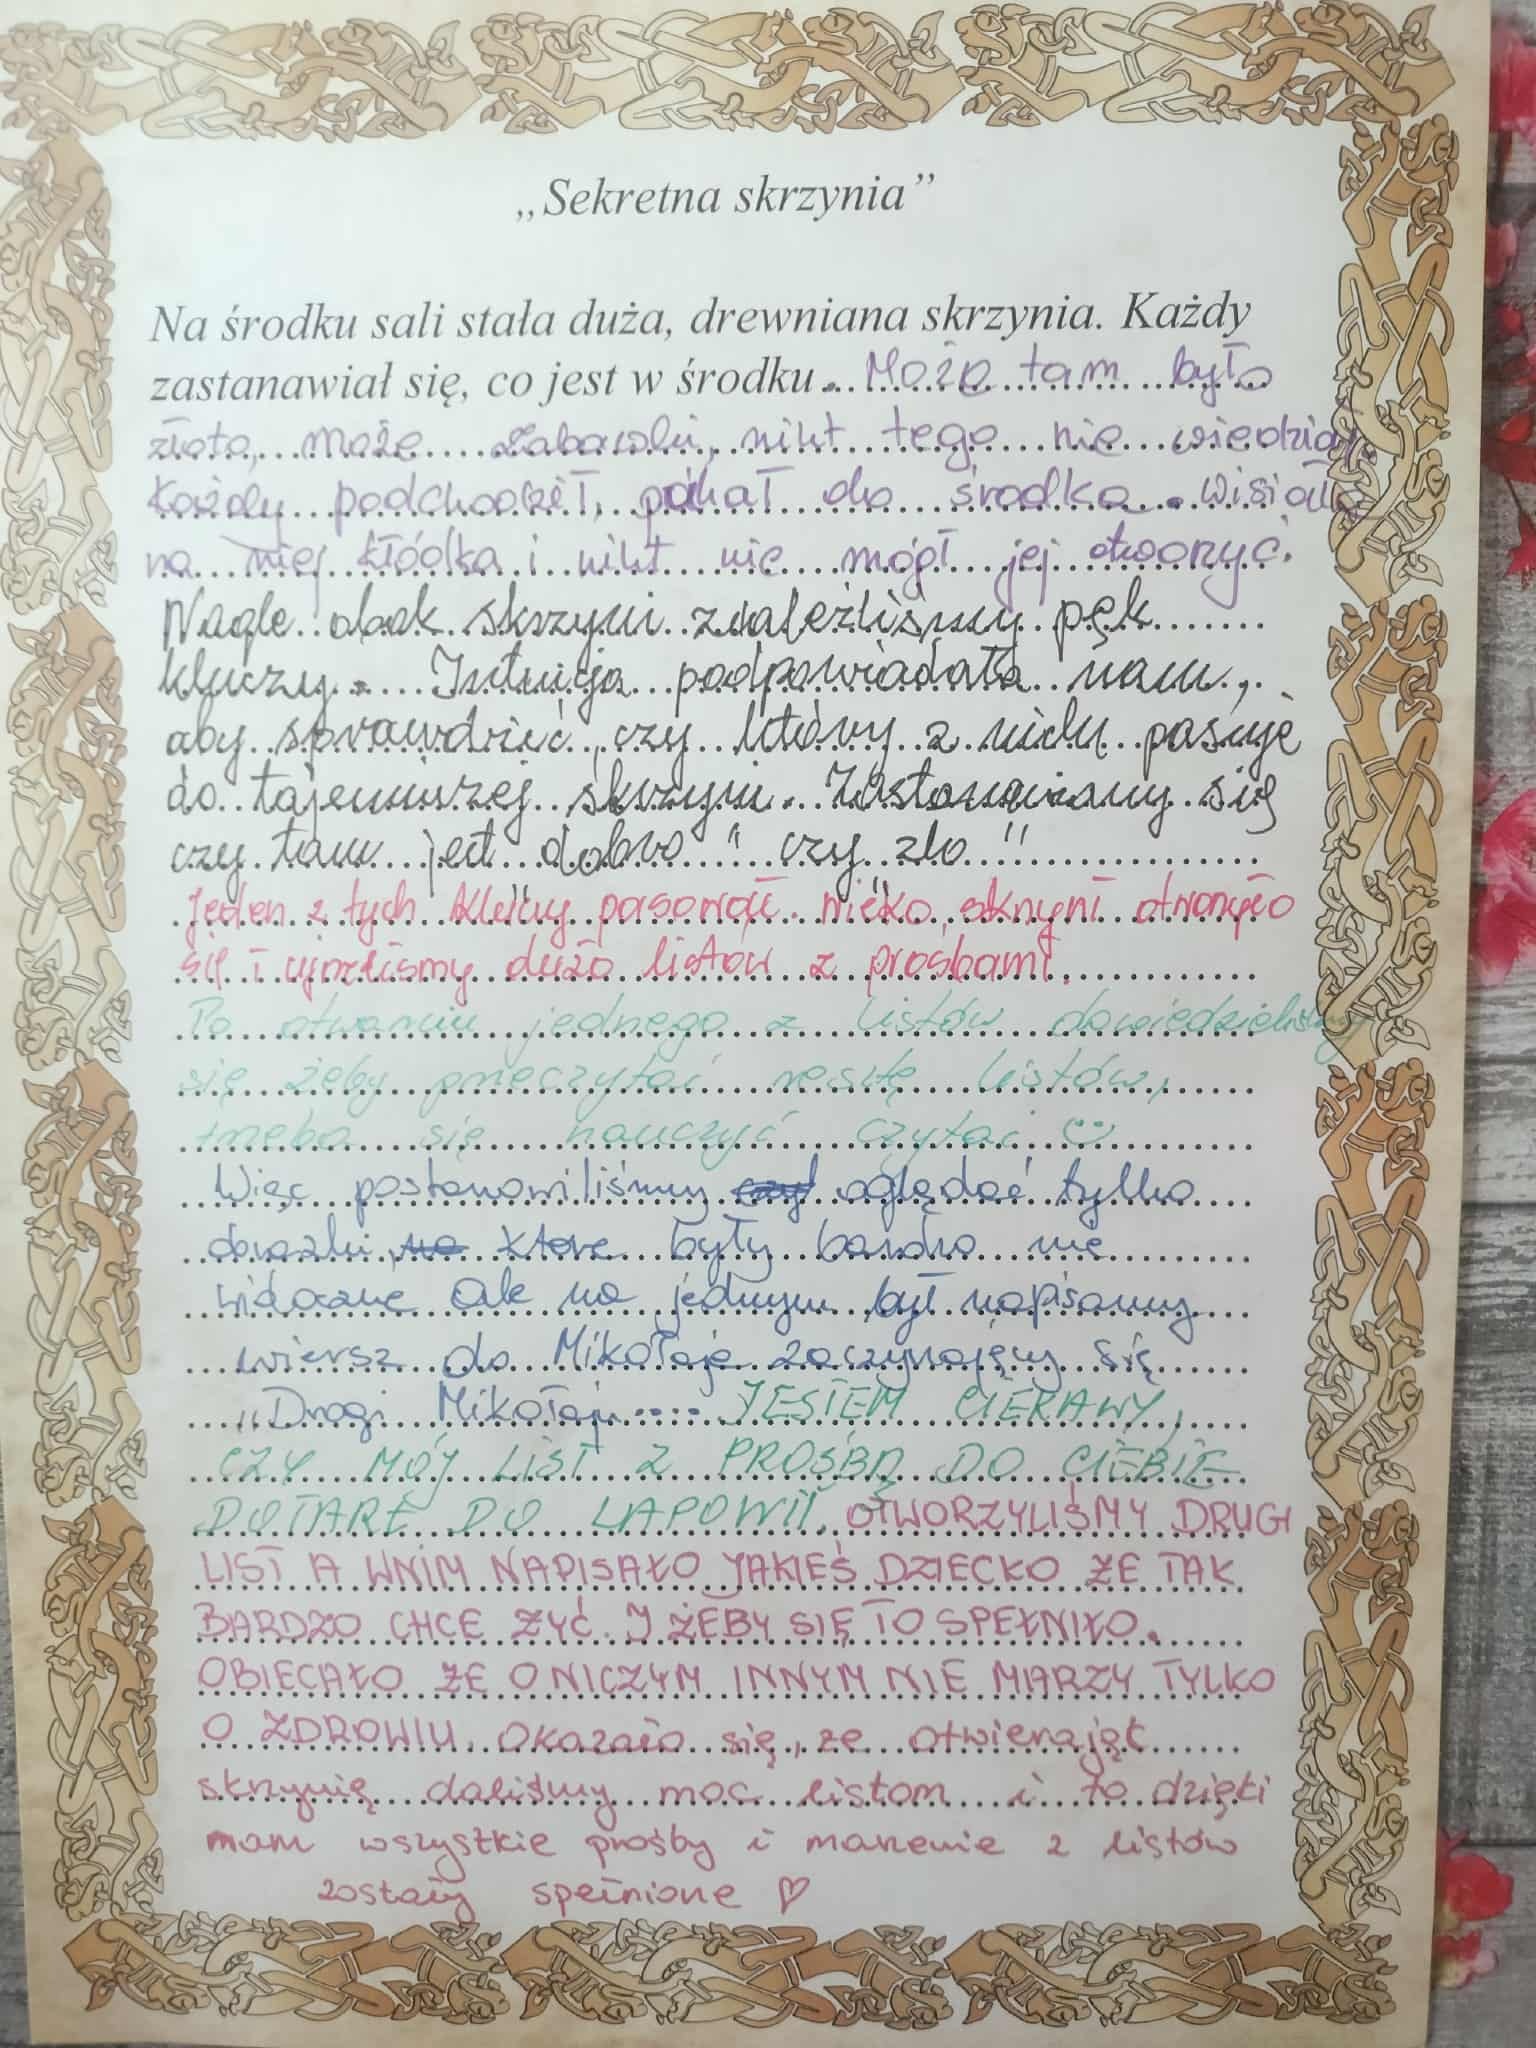 „Sekretna skrzynia”
Na środku sali stała duża, drewniana skrzynia. Każdy
zastanawiał się, co jest w środku. Może tam było
złoto, może zabawki, nikt tego nie wiedział.
Każdy podchodził, pukał do środka. wisiała
na niej kłódka i nikt nie mógł jej otworzyć.
Nagle obok skrzyni znaleźliśmy pęk
kluczy. Intuicja podpowiadała nam,
aby sprawdzić, czy który z nich pasuje
do tajemniczej skrzyni. Zastanawiamy się
czy tam jest dobro" czy zło"
Jeden z tych kluczy pasował. wieko skrzyni otworzyło
się i ujrzeliśmy dużo listów z prośbami.
Po otwarciu jednego z listów dowiedzieliśmy
się żeby przeczytać resztę listów,
trzeba się nauczyć czytać ☺
Więc postanowiliśmy oglądać tylko
obrazki, które były bardzo nie
widoczne ale na jednym był napisany
wiersz do Mikołaja zaczynający się
„Drogi Mikołaju.... JESTEM CIEKAWY,
CZY MÓJ LIST Z PROŚBĄ DO CIEBIE
DOTARŁ DO LAPONII. OTWORZYLIŚMY DRUGI
LIST A WNIM NAPISAŁO JAKIEŚ DZIECKO ŻE TAK
BARDZO CHCE ŻYĆ. I ŻEBY SIĘ TO SPEŁNIŁO.
OBIECAŁO ŻE O NICZYM INNYM NIE MARZY TYLKO
O ZDROWIU. Okazało się, że otwierając
skrzynię daliśmy moc listom i to dzięki
nam wszystkie prośby i marzenie z listów
zostały spełnione ♡